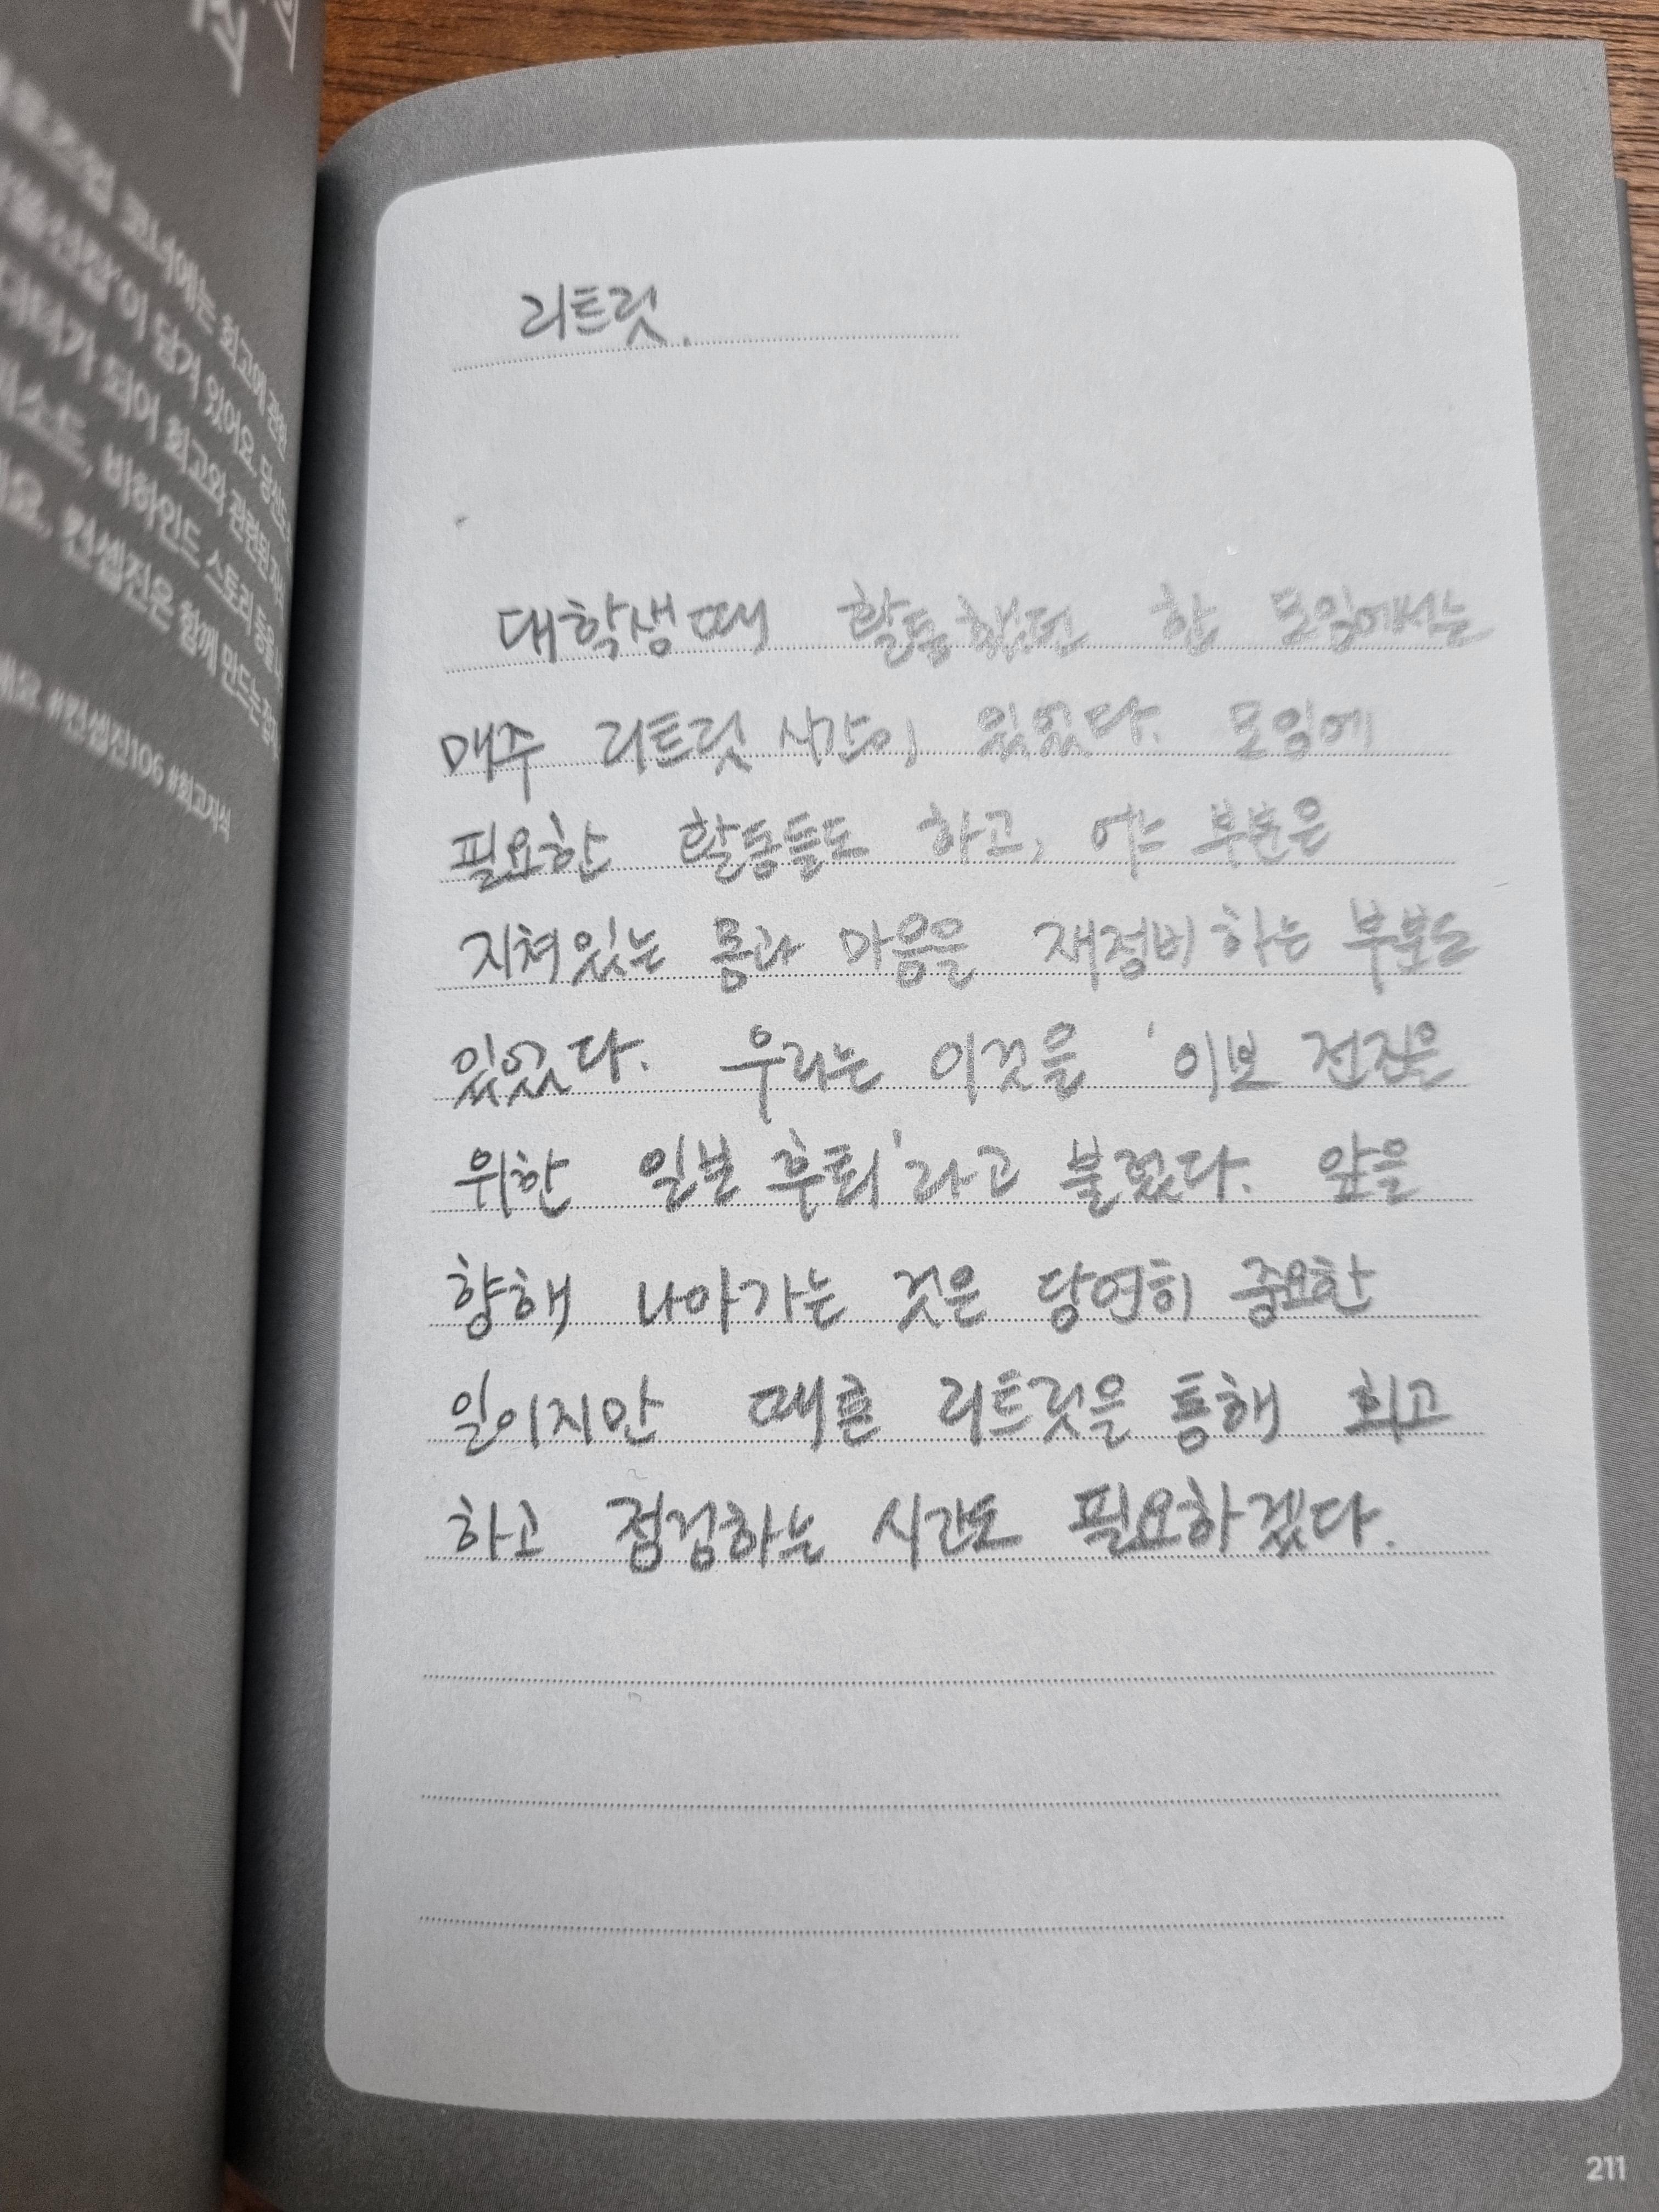 리트릿.
대학생때 활동했던 한 모임에서는
매주 리트릿 시간이 있었다. 모임에
필요한 활동들도 하고, 어느 부분은
지쳐있는 몸과 마음을 재정비하는 부분도
있었다. 우리는 이것을 '이보 전진을
위한 일보 후퇴'라고 불렀다. 앞을
향해 나아가는 것은 당연히 중요한
일이지만 때론 리트릿을 통해 회고
하고 점검하는 시간도 필요하겠다.
211
코너에는 회고에 관한
이 담겨 있어요. 당신도
가 되어 회고와 관련된
소드, 비하인드 스토리 등을
요. 컨셉진은 함께 만드는
#컨셉진106 #회고지식